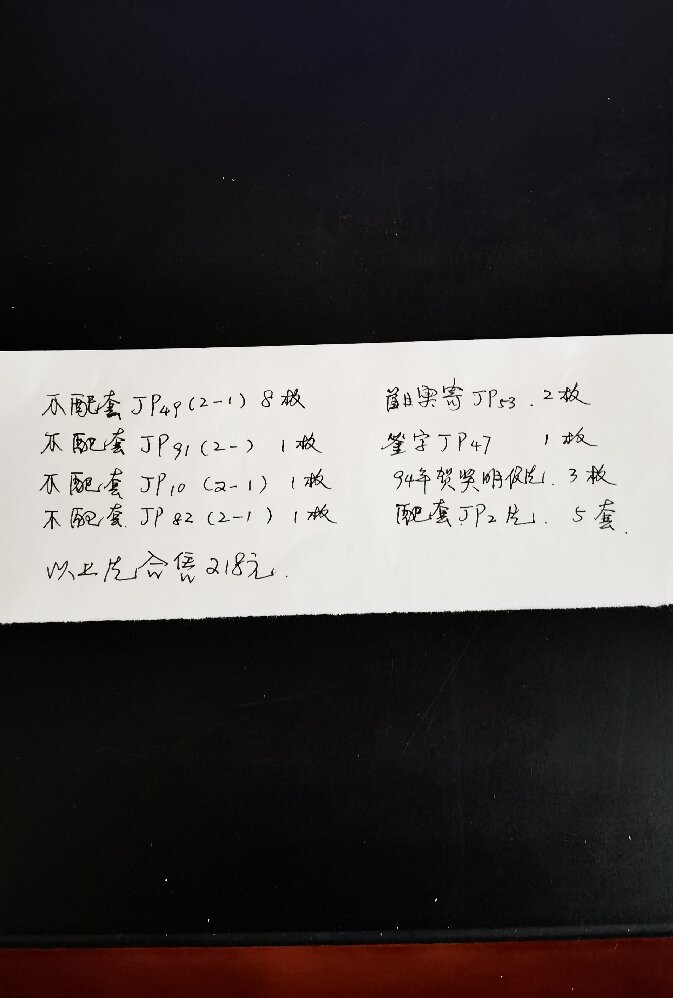 不配套 JP49(2-1) 8枚
不配套 JP91(2-) 1枚
不配套 JP10(2-1) 1枚
不配套 JP82(2-1) 1枚
以上片合售218元.
首日实寄 JP53. 2枚
签字 JP47 1枚
94年贺奖明信片. 3枚
配套 JP2片. 5套.